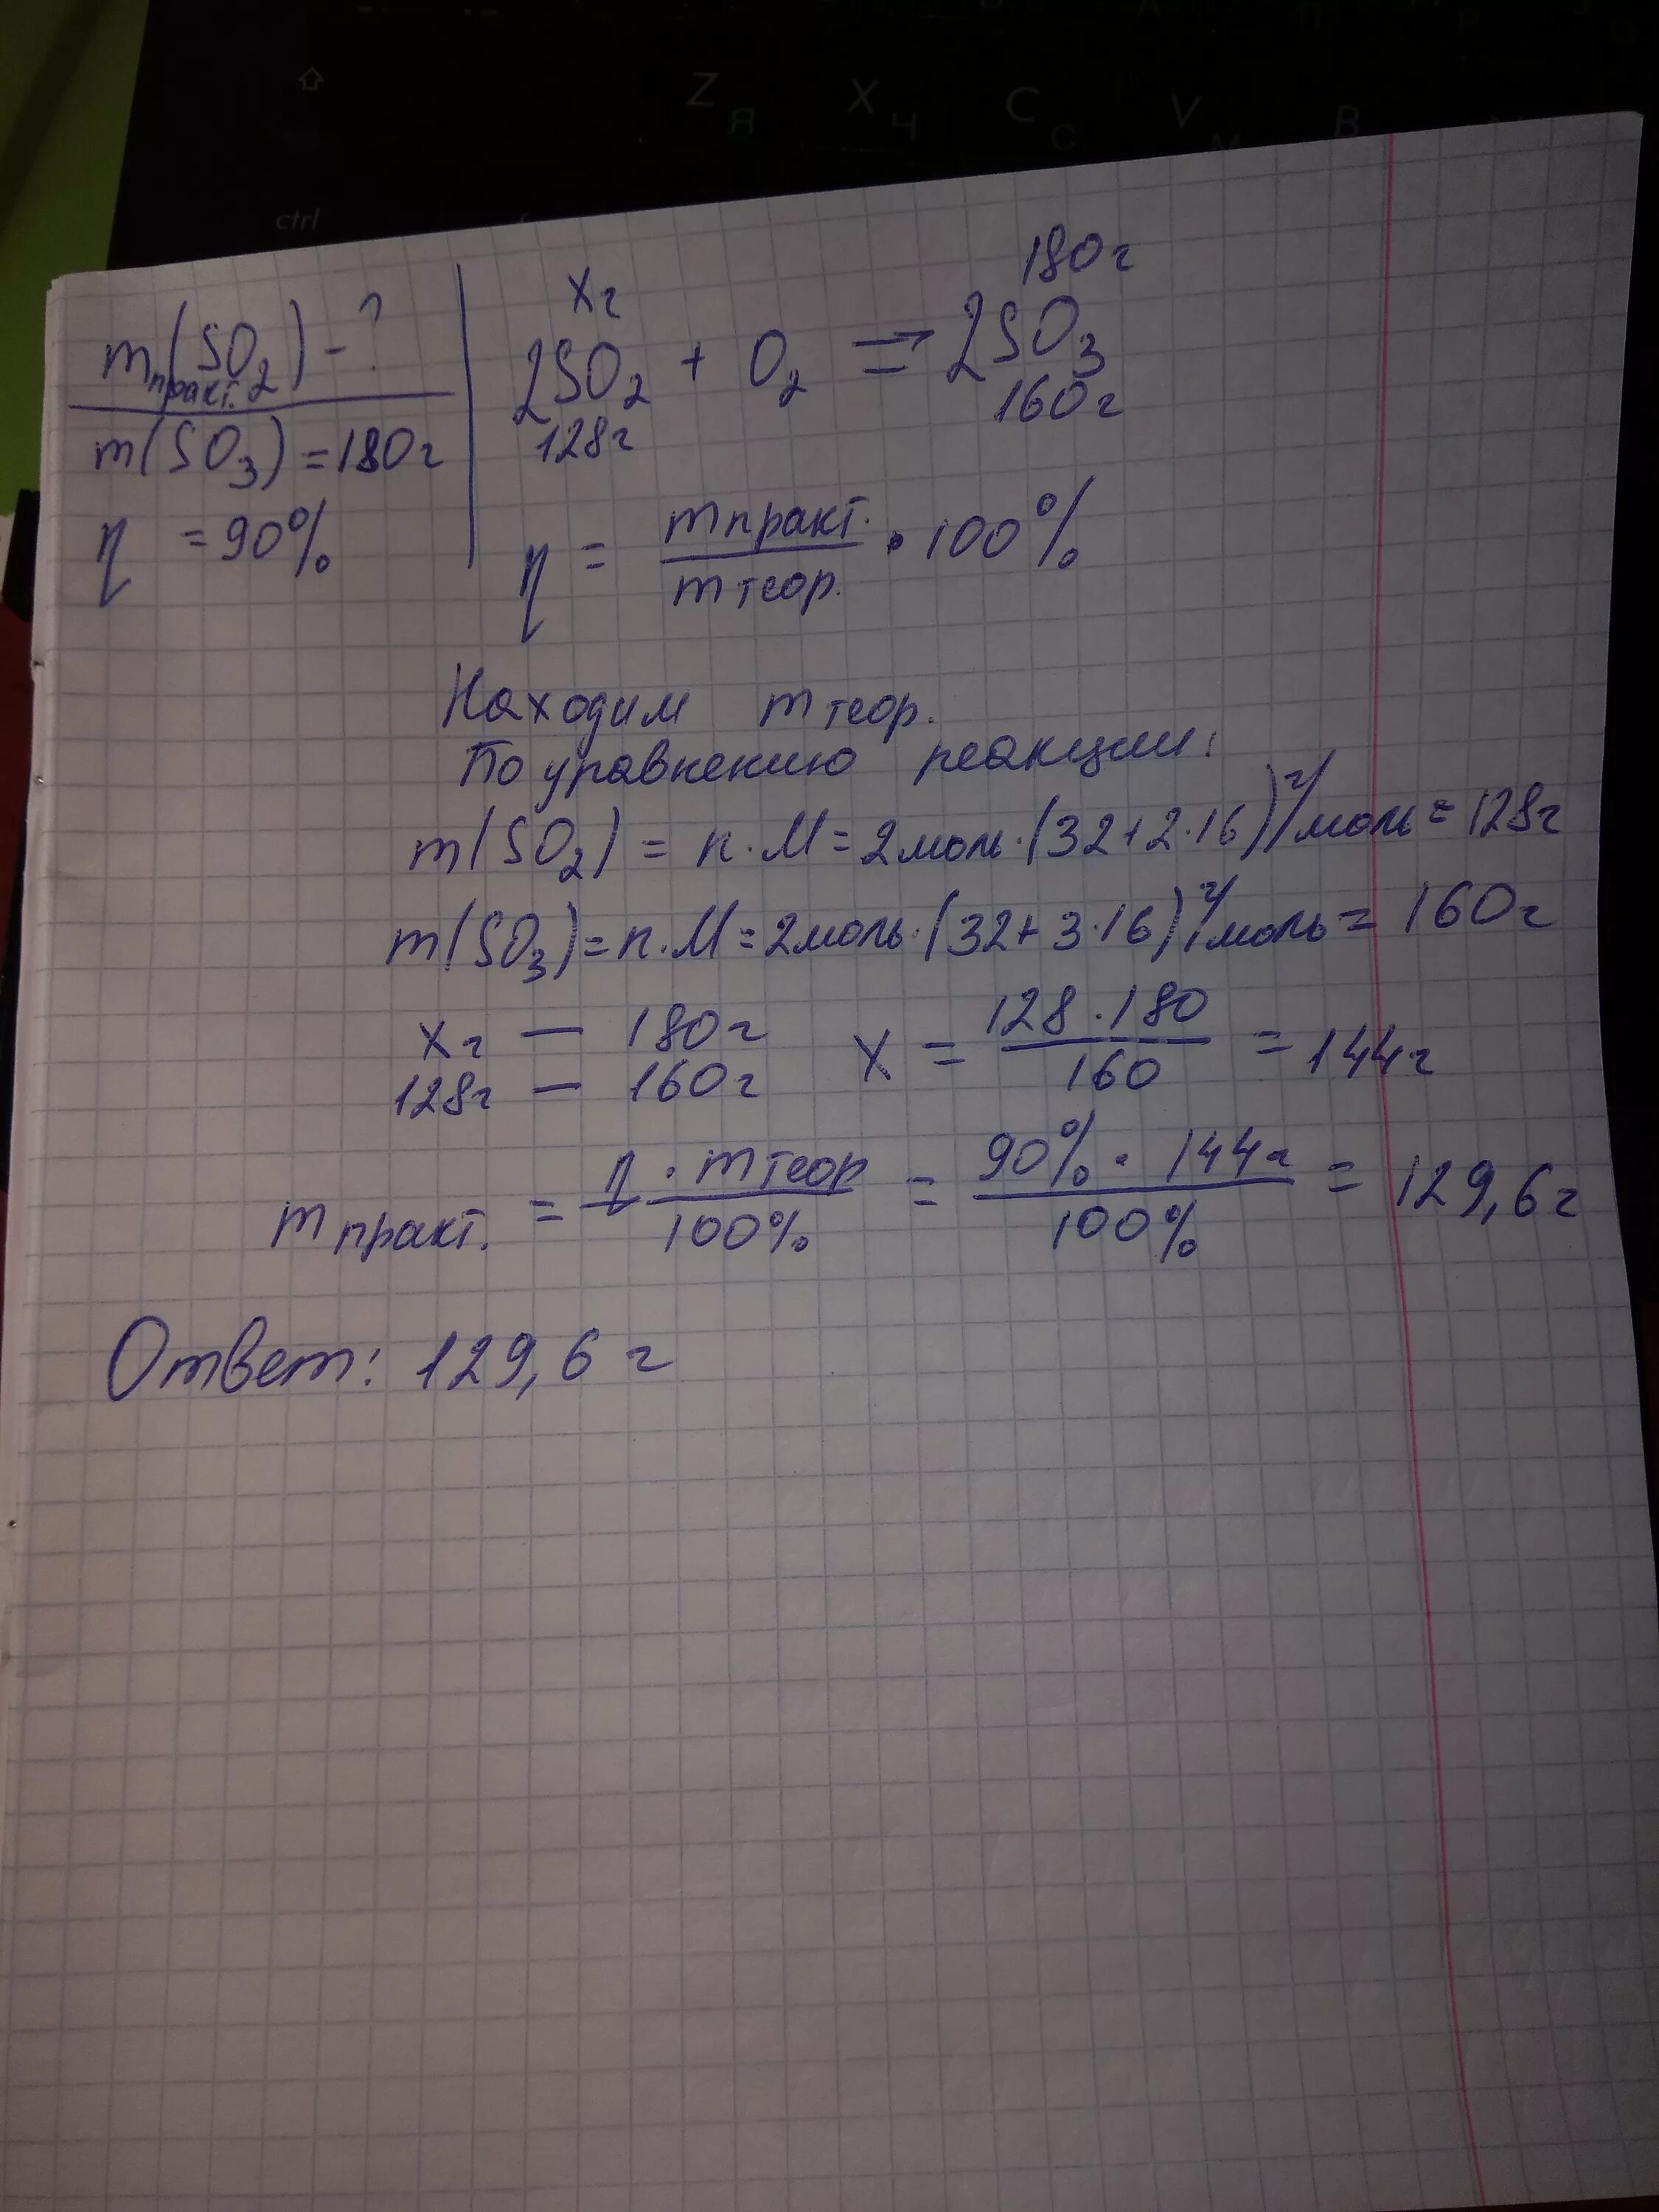 Z Я X Ч C С V М B
ctrl
m практ.(SO₂) - ?
m(SO₃) = 180г
η = 90%
xг 180г
2SO₂ + O₂ ⇒ 2SO₃
128г 160г
η = mпракт. / mтеор. · 100%
Находим mтеор.
По уравнению реакции:
m(SO₂) = n·M = 2моль·(32+2·16)г/моль = 128г
m(SO₃) = n·M = 2моль·(32+3·16)г/моль = 160г
xг — 180г x = 128·180 / 160 = 144г
128г — 160г
mпракт. = η · mтеор / 100% = 90% · 144г / 100% = 129,6г
Ответ: 129,6 г